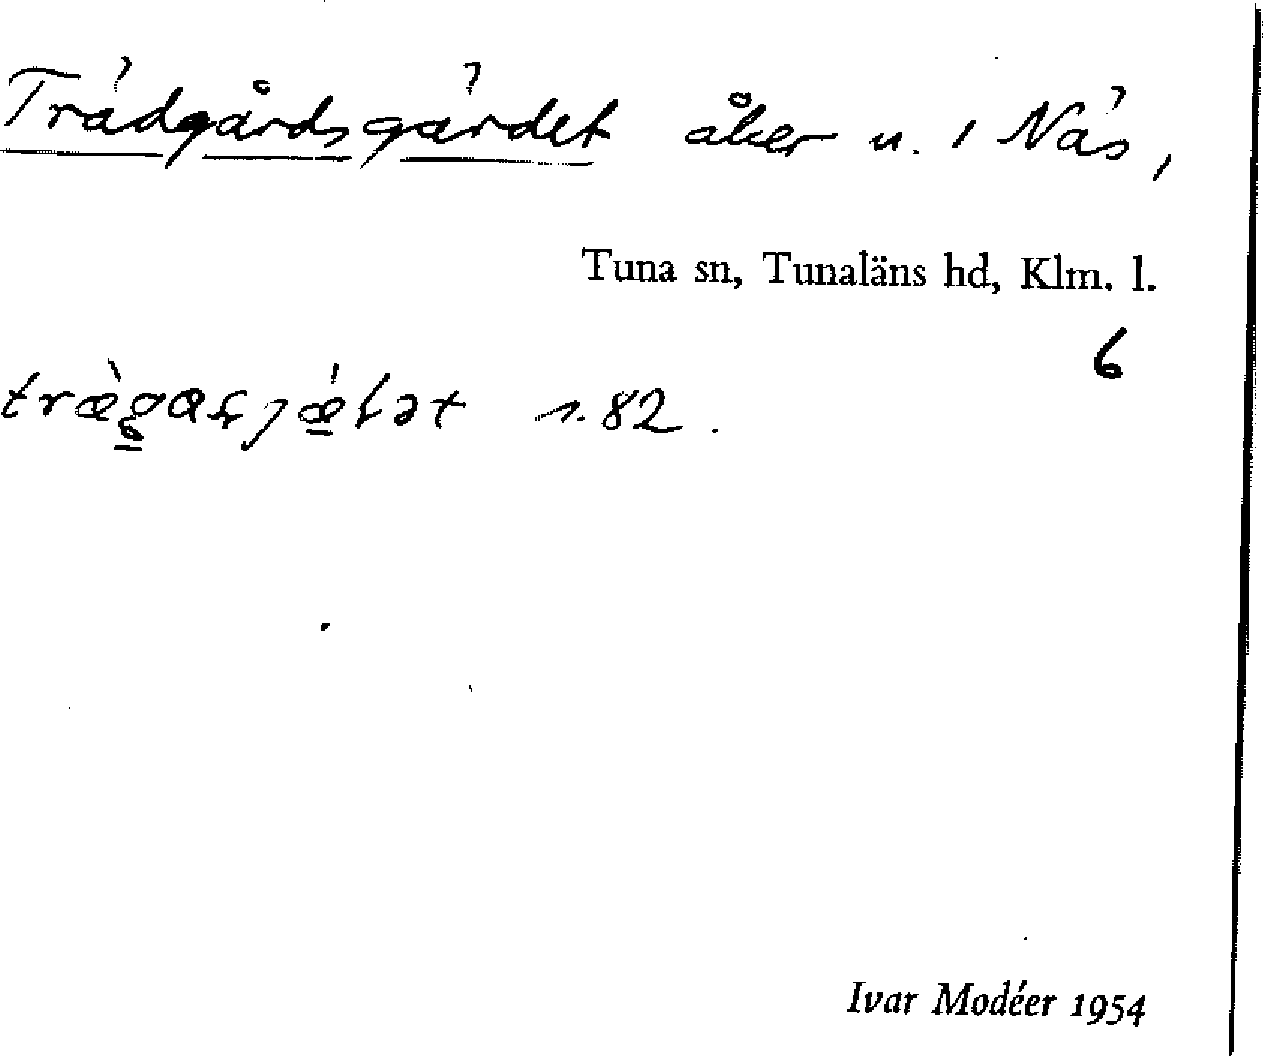 Trädgårdsgärdet åker u. 1 Näs,
Tuna sn, Tunaläns hd, Klm. l.
6
1.82.
Ivar Modéer 1954